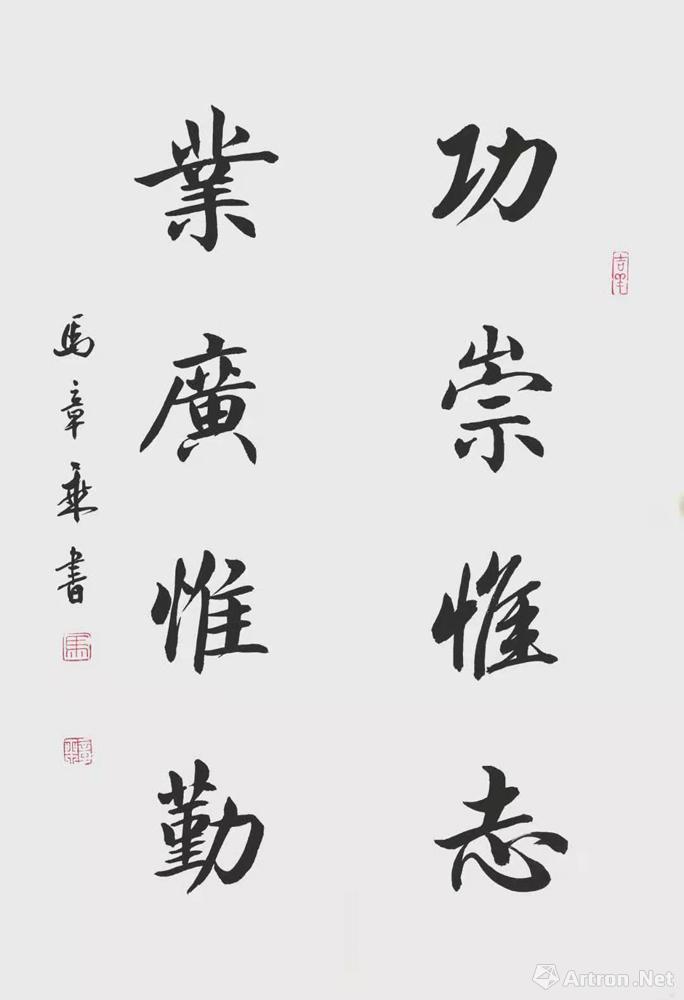 功崇惟志
業廣惟勤
馬章乘書
Artron.Net